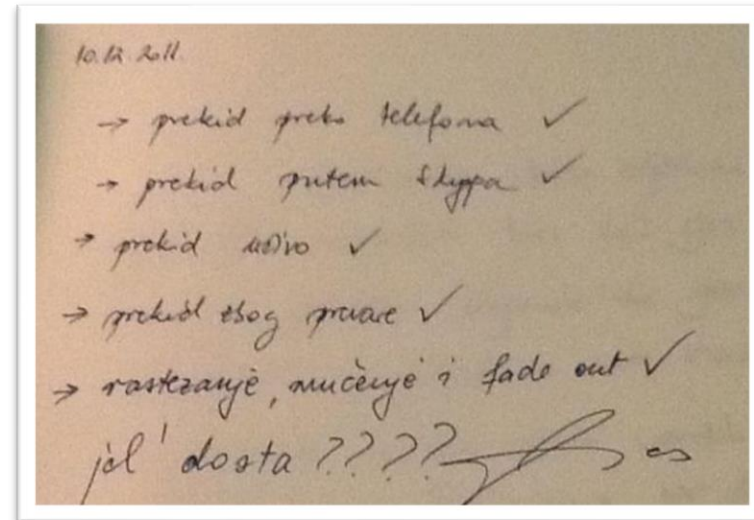 10.12.2011.
→ prekid preko telefona ✓
→ prekid putem Skyppa ✓
→ prekid uživo ✓
→ prekid zbog prevare ✓
→ rastezanje, mučenje i fade out ✓
jel' dosta ????